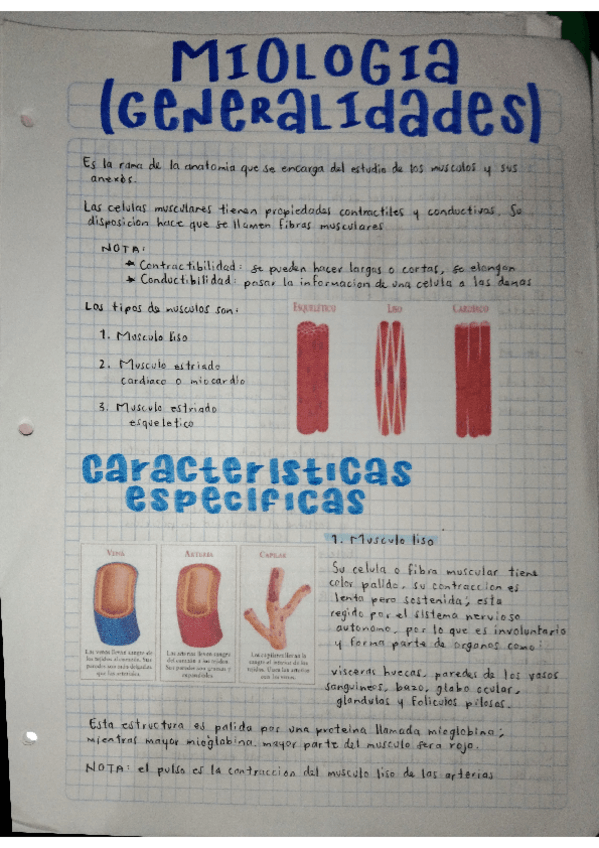 MIOLOGIA
(GENERALIDADES)
Es la rama de la anatomia que se encarga del estudio de los musculos y sus
anexos.
Las celulas musculares tienen propiedades contractiles y conductivas. Su
disposicion hace que se llamen fibras musculares
NOTA:
* Contractibilidad: se pueden hacer largas o cortas, se elongan
* Conductibilidad: pasar la informacion de una celula a las demas
Los tipos de musculos son:
1. Musculo liso
2. Musculo estriado
cardiaco o miocardio
3. Musculo estriado
esqueletico
ESQUELÉTICO LISO CARDÍACO
características
específicas
VENA
Las venas llevan sangre de
los tejidos al corazón. Sus
paredes son más delgadas
que las arteriales.
ARTERIA
Las arterias llevan sangre
del corazón a los tejidos.
Sus paredes son gruesas y
expandibles
CAPILAR
Los capilares llevan la
sangre al interior de los
tejidos. Unen las arterias
con las venas.
1. Musculo liso
Su celula o fibra muscular tiene
color palido, su contraccion es
lenta pero sostenida; esta
regido por el sistema nervioso
autonomo, por lo que es involuntario
y forma parte de organos como:
visceras huecas, paredes de los vasos
sanguineos, bazo, globo ocular,
glandulas y foliculos pilosos.
Esta estructura es palida por una proteina llamada mioglobina;
mientras mayor mioglobina, mayor parte del musculo sera rojo.
NOTA: el pulso es la contraccion del musculo liso de las arterias